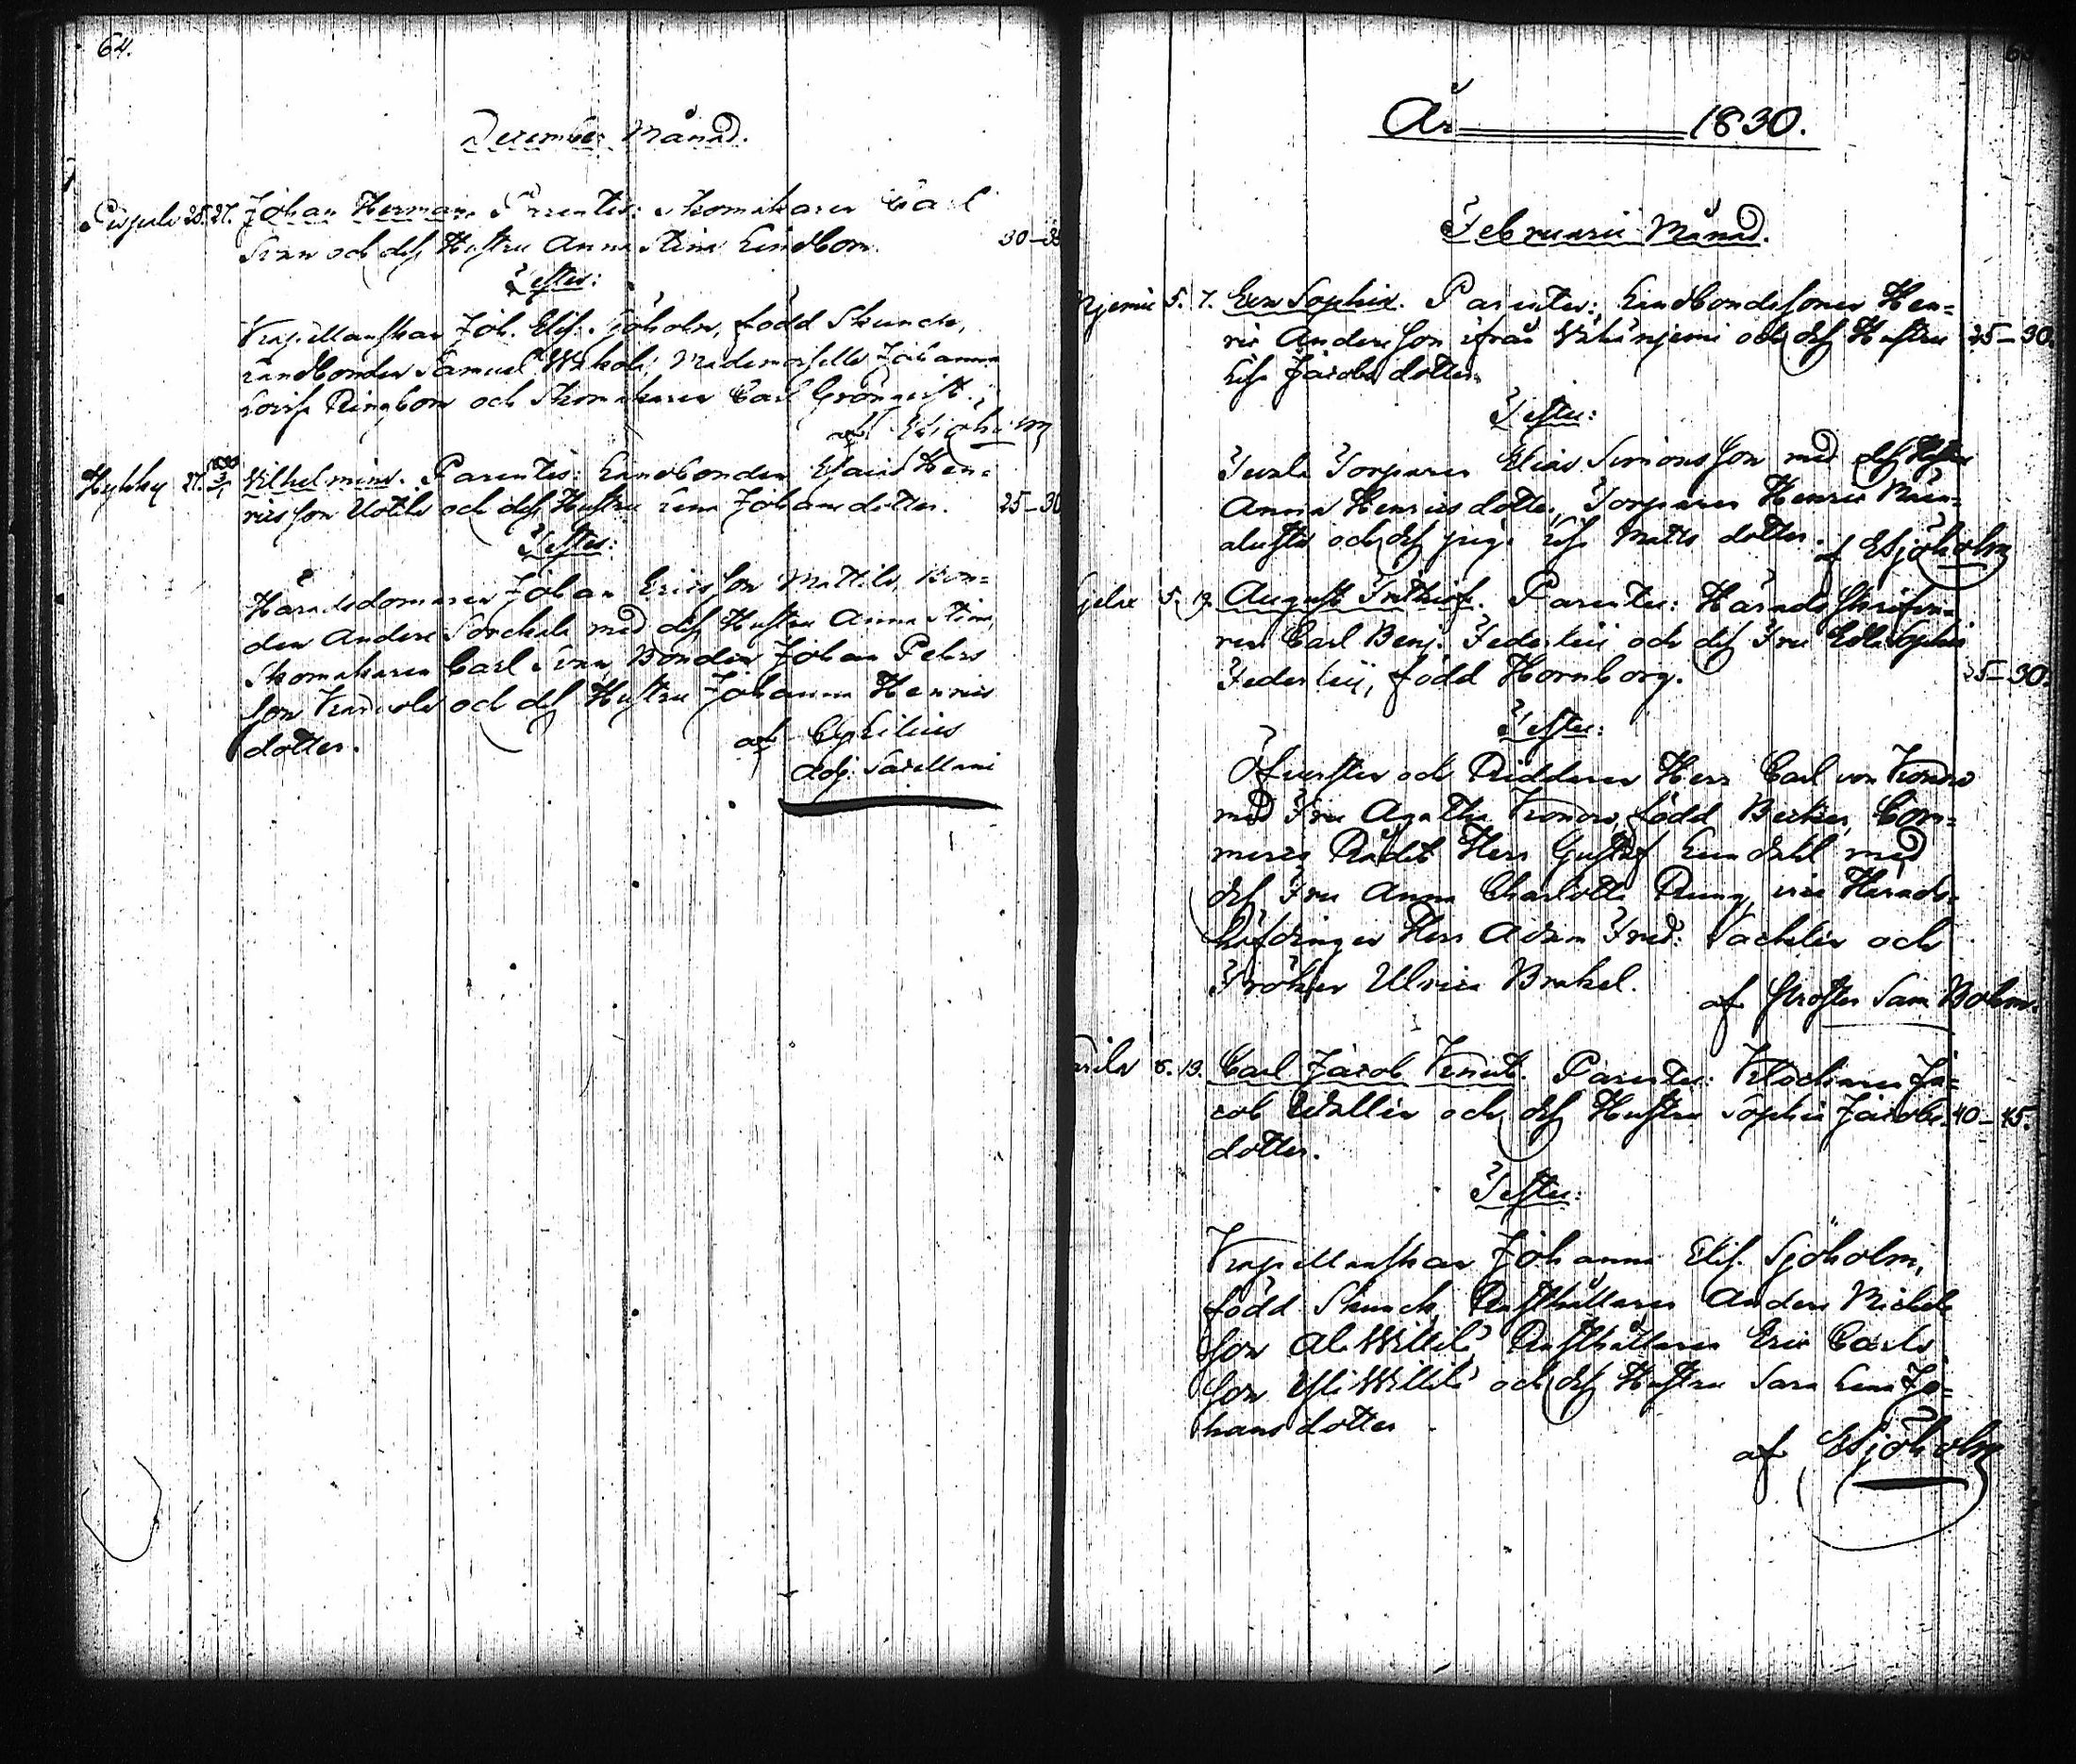 64.
December Månad.
Pispala 25. 27. Johan Herman. Parentes: Skomakaren Carl
Svan och dess Hustru Anna Stina Lindbom. 30-35
Testes:
Kapellanskan Joh. Elis. Sjöholm, född Skunck,
Landbonden Samuel Mademoiselle Johanna
Lovisa Ringbom och Skomakaren Carl Grönqvist.
af ESjöholm
Hykky 27. 1830 3/1 Vilhelmina. Parentes: Landbonden Esaias Hen-
ricsson Uotila och dess Hustru Lena Johansdotter. 25-30
Testes:
Häradsdomaren Johan Ericsson Mattila, Bon-
den Anders Sorckala med dess Hustru Anna Stina,
Skomakaren Carl Svan, Bonden Johan Pehrs
son och dess Hustru Johanna Henrics
dotter.
af
Adj. Sacellani
År 1830.
Februarii Månad.
njemi 5. 7. Eva Sophia. Parentes: Landbondesonen Hen-
ric Andersson ifrån och dess Hustru 25-30.
Lisa Jacobsdotter.
Testes:
Torparen Elias Simonsson med dess Hustru
Anna Henricsdotter, Torparen Henric
och dess pig. Lisa Matts dotter.
af ESjöholm
5. 19. August Frithiof. Parentes: Häradsskrifva-
ren Carl Benj. Federleij och dess Fru Edla Sophia
Federleij, född Hornborg. 25-30.
Testes:
Öfversten och Riddaren Herr Carl von Konow
med Fru Agatha Konow, född Becker, Com-
merce Rådet Herr Gustaf Lundahl med
dess Fru Anna Charlotta Rung, vice Härads-
höfdingen Herr Adam Fred: Sacklén och
Fröken Ulrica Brakel.
af Prosten Sam. Bohm.
8. 13. Carl Jacob Knut. Parentes: Klockaren Ja-
cob Wallin och dess Hustru Sophia Jacobs- 40-45.
dotter.
Testes:
Kapellanskan Johanna Elis. Sjöholm,
född Skunck, Rusthållaren Anders Michels
son Ala Willilä, Rusthållaren Eric Carls
son Yli Willilä och dess Hustru Sara Lena Jo-
hansdotter
af ESjöholm